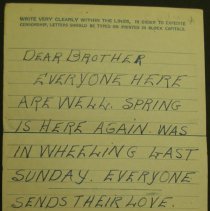 WRITE VERY CLEARLY WITHIN THE LINES. IN ORDER TO EXPEDITE
CENSORSHIP, LETTERS SHOULD BE TYPED OR PRINTED IN BLOCK CAPITALS.
DEAR BROTHER
EVERYONE HERE
ARE WELL. SPRING
IS HERE AGAIN. WAS
IN WHEELING LAST
SUNDAY. EVERYONE
SENDS THEIR LOVE.